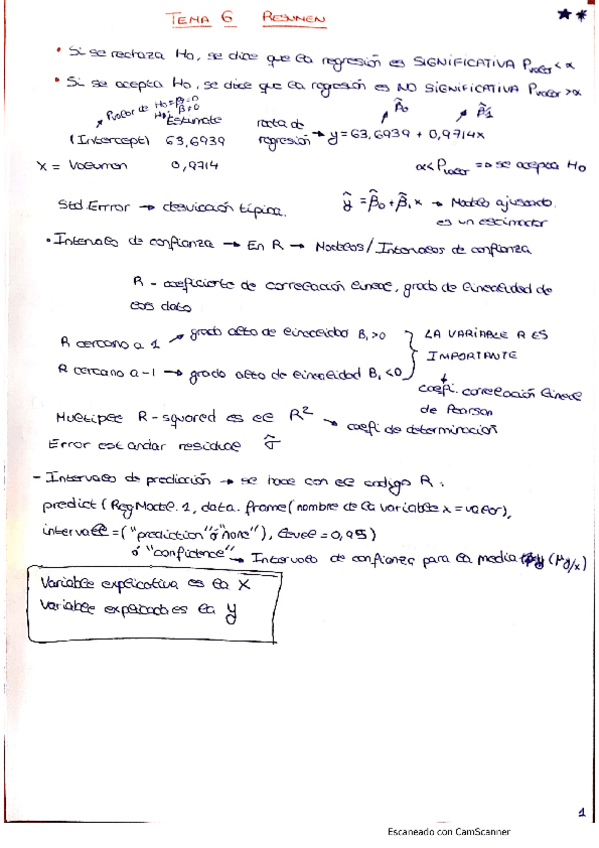 TEMA 6 RESUMEN
• Si se rechaza H0, se dice que la regresión es SIGNIFICATIVA Pvalor < α
• Si se acepta H0, se dice que la regresión es NO SIGNIFICATIVA Pvalor > α
Pvalor de H0 = β = 0
H1 = β ≠ 0
β̂0 β̂1
Estimate
(Intercept) 63,6939
recta de regresión → y = 63,6939 + 0,9714x
X = Volumen 0,9714
α < Pvalor => se acepta H0
Std Error → desviación típica.
ŷ = β̂0 + β̂1 x → Modelo ajustado.
es un estimador
• Intervalo de confianza → En R → Modelos / Intervalos de confianza
R - coeficiente de correlación lineal, grado de linealidad de
los dato
R cercano a 1 → grado alto de linealidad B1 > 0
R cercano a -1 → grado alto de linealidad B1 < 0
LA VARIABLE R ES
IMPORTANTE
coefi. correlación lineal
de Pearson
Multiple R-squared es el R² → coefi de determinación
Error estandar residual σ̂
- Intervalo de predicción → se hace con el codigo R:
predict (RegModel.1, data.frame (nombre de la variable x = valor),
interval = ("prediction" ó "none"), level = 0,95)
ó "confidence" → Intervalo de confianza para la media (μy/x)
Variable explicativa es la X
Variable explicada es la y
1
Escaneado con CamScanner